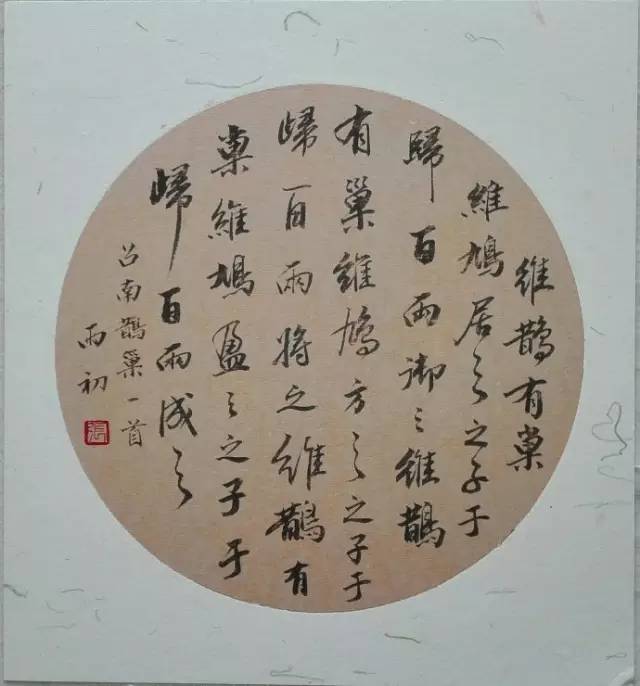 維鵲有巢
維鳩居之之子于
歸百兩御之維鵲
有巢維鳩方之之子于
歸百兩將之維鵲有
巢維鳩盈之之子于
歸百兩成之
召南鵲巢一首
雨初